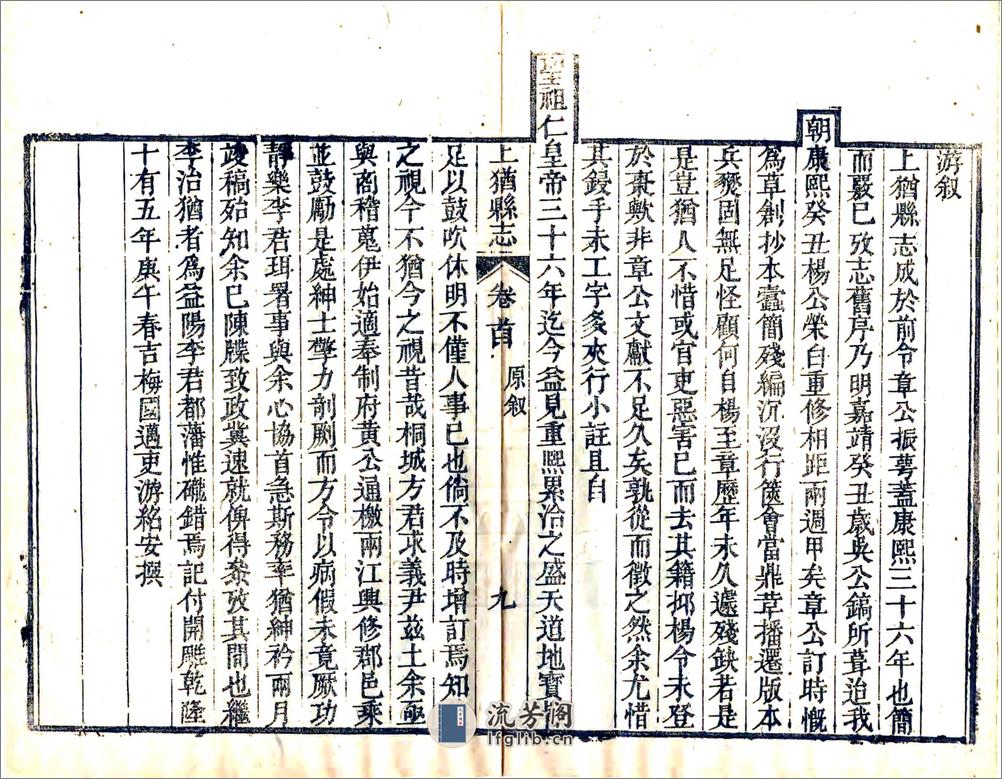 游叙
上猶縣志成於前令章公振萼蓋康熙三十六年也簡
而嚴已攷志舊序乃明嘉靖癸丑歲吳公鎬所葺迨我
朝康熙癸丑楊公榮白重修相距兩週甲矣章公訂時慨
爲草創抄本蠹簡殘編沉沒行篋會當鼎革播遷版本
兵燹固無足怪顧何自楊至章歷年未久遽殘缺若是
是豈猶人不惜或官吏惡害已而去其籍抑楊令未登
於棗歟非章公文獻不足久矣孰從而徵之然余尤惜
其鋟手未工字多夾行小註且自
聖祖仁皇帝三十六年迄今益見重熙累洽之盛天道地寶
上猶縣志 卷首 原叙 九
足以鼓吹休明不僅人事已也倘不及時增訂焉知
之視今不猶今之視昔哉桐城方君求義尹兹土余亟
與商稽蒐伊始適奉制府黃公通檄兩江興修郡邑乘
並鼓勵是處紳士擎力剞劂而方令以病假未竟厥功
靜樂李君珥署事與余心協首急斯務率猶紳衿兩月
竣稿殆知余已陳牒致政冀速就俾得叅攷其間也繼
李治猶者爲益陽李君都藩惟礲錯焉記付開雕乾隆
十有五年庚午春吉梅國邁吏游絡安撰
流芳阁
lfglib.cn